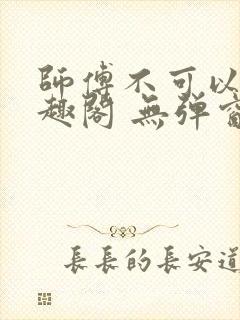 師傅不可以
趣閣 無彈
長長的長安道